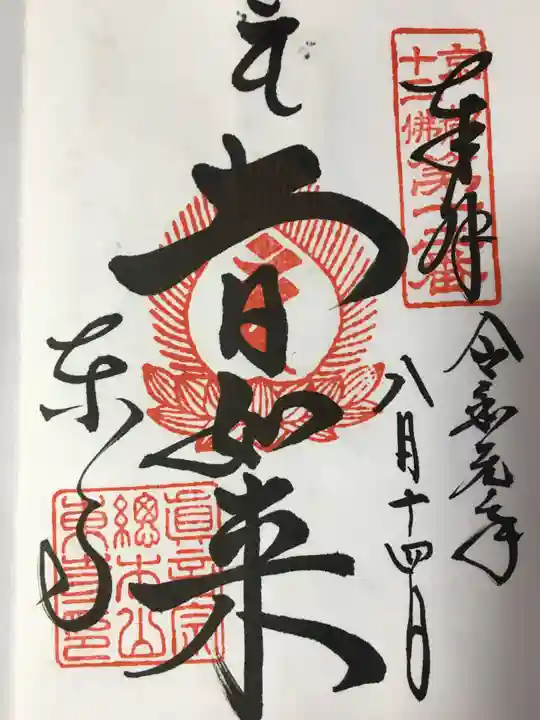 奉拝
京都十二佛第十二番
令和元年
八月十四日
大日如来
東寺
真言宗
総本山
東寺印